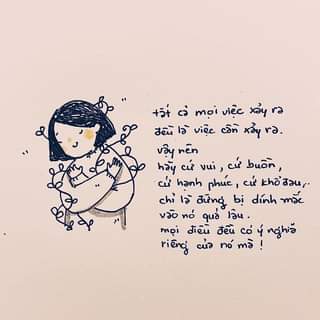 tất cả mọi việc xảy ra
đều là việc cần xảy ra.
vậy nên
hãy cứ vui, cứ buồn,
cứ hạnh phúc, cứ khổ đau,.
chỉ là đừng bị dính mắc
vào nó quá lâu.
mọi điều đều có ý nghĩa
riêng của nó mà!